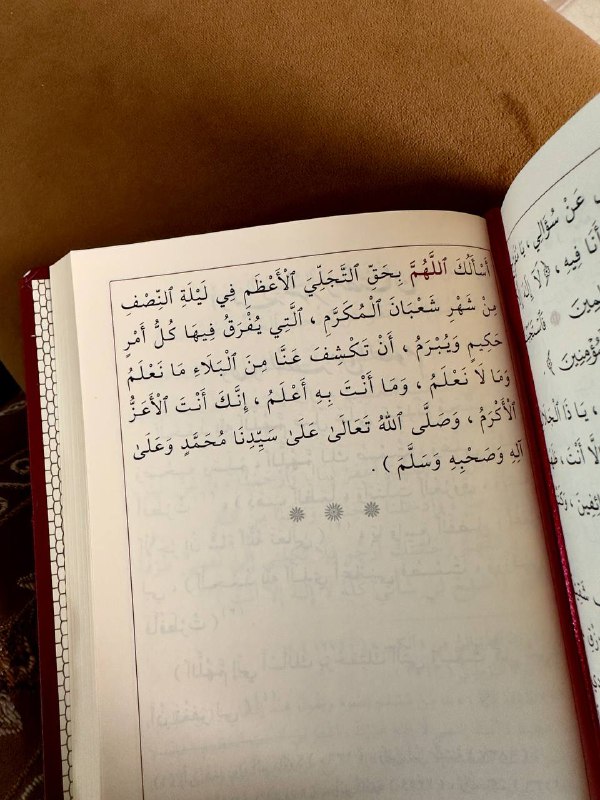 أَسْأَلُكَ ٱللَّهُمَّ بِحَقِّ التَّجَلِّيَ ٱلْأَعْظَمِ فِي لَيْلَةِ النِّصْفِ
مِنْ شَهْرِ شَعْبَانَ ٱلْمُكَرَّمِ ، الَّتِي يُفْرَقُ فِيهَا كُلُّ أَمْرٍ
حَكِيمٍ وَيُبْرَمُ ، أَنْ تَكْشِفَ عَنَّا مِنَ ٱلْبَلَاءِ مَا نَعْلَمُ
وَمَا لَا نَعْلَمُ ، وَمَا أَنْتَ بِهِ أَعْلَمُ ، إِنَّكَ أَنْتَ ٱلْأَعَزُّ
ٱلْأَكْرَمُ ، وَصَلَّى ٱللهُ تَعَالَىٰ عَلَىٰ سَيِّدِنَا مُحَمَّدٍ وَعَلَىٰ
آلِهِ وَصَحْبِهِ وَسَلَّمَ ) .
عَنْ سُؤَالِي ، يَا
أَنَا فِيهِ ، ﴿ لَا إِلَٰهَ
، يَا ذَا ٱلْجَلَالِ
إِلَّا أَنْتَ ،